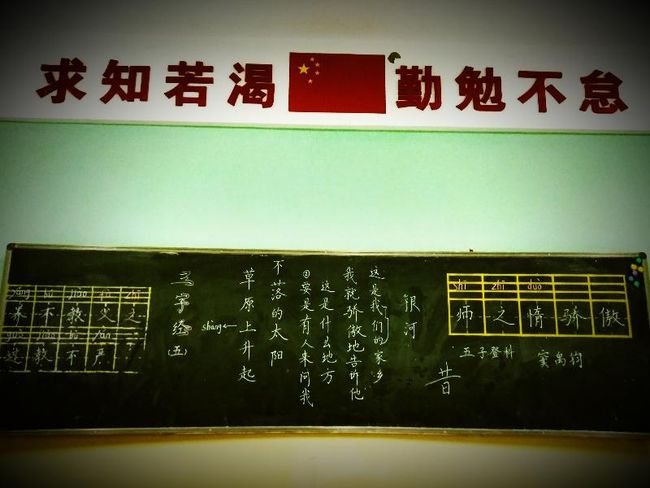 求知若渴 勤勉不怠
bù jiào fù zhī
养不教父之
过教不严
三字经
(五)
shàng
草原上升起
不落的太阳
④要是有人来问我
这是什么地方
我就骄傲地告诉他
这是我们的家乡
银河
昔
shī zhī duò
师之惰骄傲
五子登科 窦禹钧